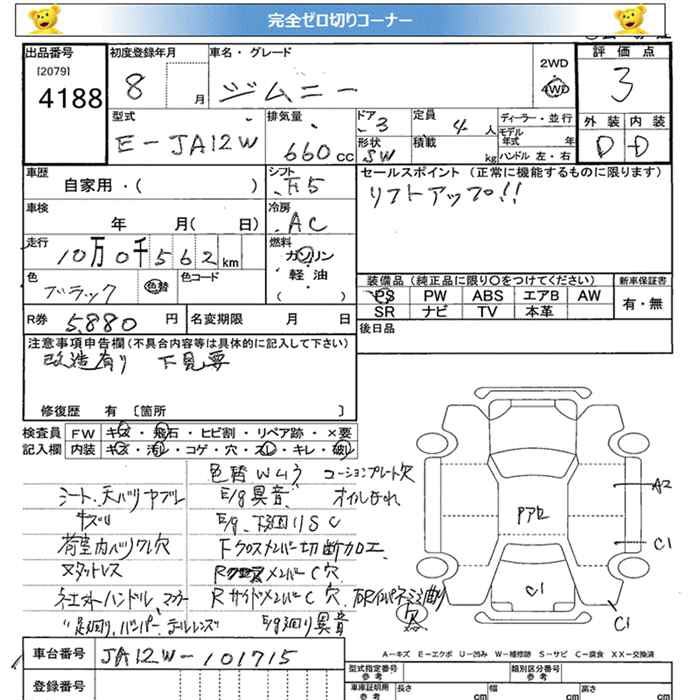 完全ゼロ切りコーナー
出品番号
[2079]
4188
初度登録年月
8 月
車名・グレード
ジムニー
2WD
4WD
評価点
3
外装 内装
D D
型式
E-JA12W
排気量
660 cc
ドア
3
形状
SW
定員
4 人
積載
kg
ディーラー・並行
モデル年式 年
ハンドル 左・右
車歴
自家用・( )
シフト
F5
セールスポイント (正常に機能するものに限ります)
リフトアップ!!
車検
年 月( 日)
冷房
AC
走行
10万0千562km
燃料
ガソリン
軽・油
( )
色
ブラック
色替
色コード
装備品(純正品に限り○をつけてください)
新車保証書
PS PW ABS エアB AW
SR ナビ TV 本革
有・無
R券 5,880 円
名変期限 月 日
後日品
注意事項申告欄(不具合内容等は具体的に記入して下さい)
改造有り 下見要
修復歴 有 〔箇所 〕
検査員 FW キズ・飛石・ヒビ割・リペア跡・×要
記入欄 内装 キズ・汚レ・コゲ・穴・スレ・キレ・破レ
色替Wムラ コーションプレート欠
シート、天バリヤブレ
E/g異音 オイルもれ
キズ汚
E/g、下廻りSC
荷室内バリワレ穴
Fクロスメンバー切断加工
ヌタットレス
メンバーC穴
ハンドル、マフラー
RサイドメンバーC穴
欠
足廻り、バンパー、テールレンズ
E/g廻り異音
A2
Pアセ
C1
C1
C1
車台番号 JA12W-101715
A-キズ E-エクボ U-凹み W-補修跡 S-サビ C-腐食 XX-交換済
登録番号
型式指定番号
参考
類別区分番号
参考
車庫証明用
参考
長さ cm
幅 cm
高さ cm